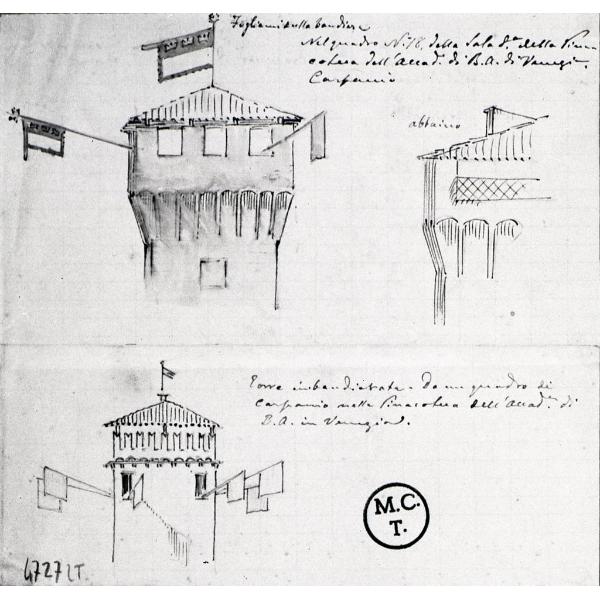 Fogliami sulla bandiera
Nel quadro N.° 18. della Sala d.ª della Pina
coteca dell'Accad.ª di B.A. di Venezi.
Carpaccio
abbaino
Torre imbandierata - Da un quadro di
Carpaccio nella Pinacoteca dell'Accad.ª di
B.A. in Venezia.
M.C.
T.
4727 LT.